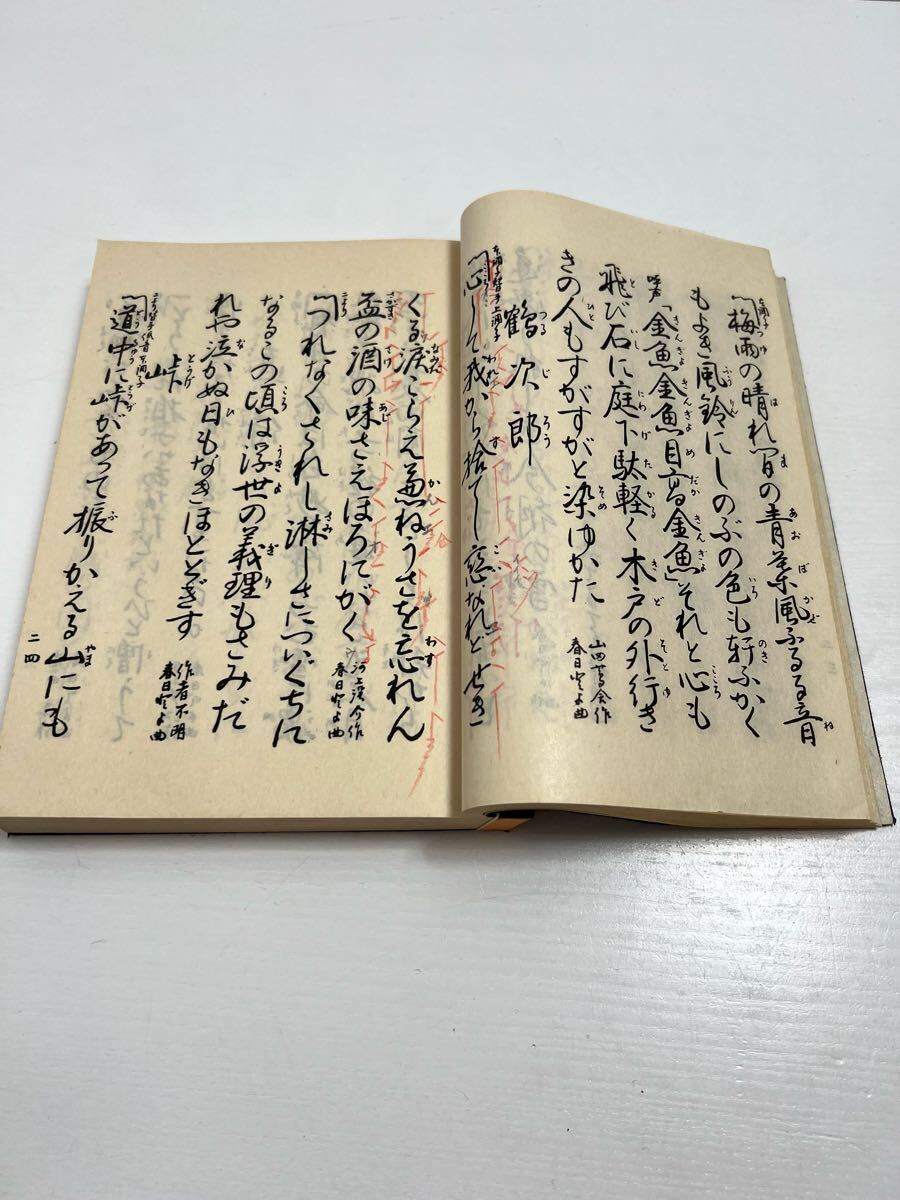 梅雨の晴れ間の青葉風ふるる音
もよき風鈴にしのぶの色も軒ふかく
呼声「金魚金魚目高金魚」それと心も
飛び石に庭下駄軽く木戸の外行き
きの人もすがすがと染ゆかた
春日とよ曲
鶴次郎
心して我から捨てし恋なれどせき
くる涙こらえ兼ねうさを忘れん
盃の酒の味さえほろにがく
春日とよ曲
つれなくされし淋しさについぐちに
なるこの頃は浮世の義理もさみだ
れや泣かぬ日もなきほととぎす
作者不明
春日とよ曲
峠
道中に峠があって振りかえる山にも
二四